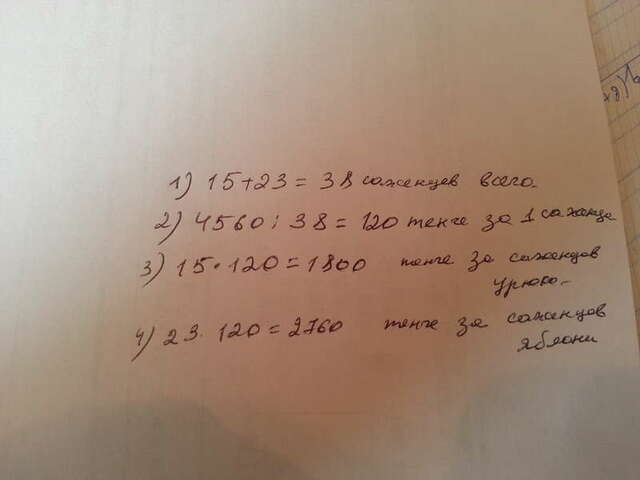 1) 15+23 = 38 саженцев всего.
2) 4560 : 38 = 120 тенге за 1 саженца
3) 15 · 120 = 1800 тенге за саженцов
урюка.
4) 23 · 120 = 2760 тенге за саженцов
яблони